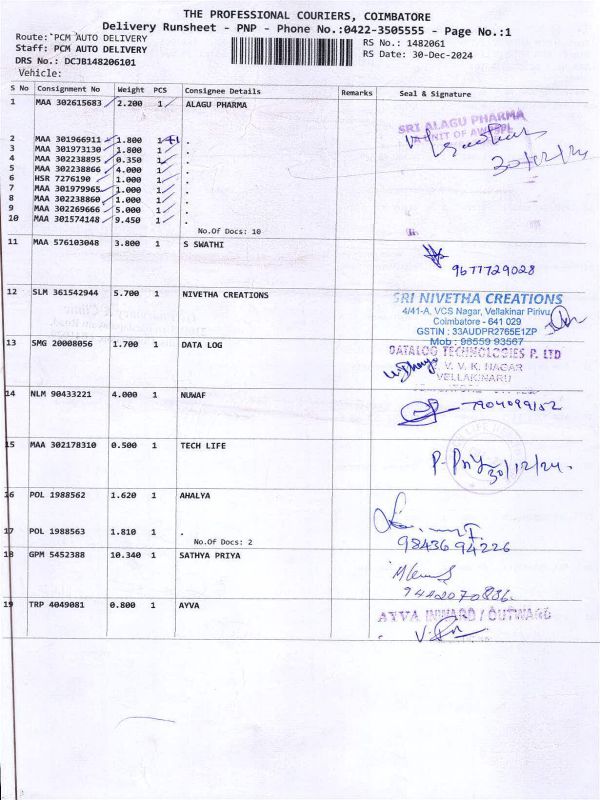 THE PROFESSIONAL COURIERS, COIMBATORE
Delivery Runsheet - PNP - Phone No.:0422-3505555 - Page No.:1
Route: PCM AUTO DELIVERY
Staff: PCM AUTO DELIVERY
DRS No.: DCJB148206101
Vehicle:
RS No.: 1482061
RS Date: 30-Dec-2024
S No Consignment No Weight PCS Consignee Details Remarks Seal & Signature
1 MAA 302615683 2.200 1 ALAGU PHARMA
SRI ALAGU PHARMA
30/12/24
2 MAA 301966911 1.800 1 +1 .
3 MAA 301973130 1.800 1 .
4 MAA 302238895 0.350 1 .
5 MAA 302238866 4.000 1 .
6 HSR 7276190 1.000 1 .
7 MAA 301979965 1.000 1 .
8 MAA 302238860 1.000 1 .
9 MAA 302269666 5.000 1 .
10 MAA 301574148 9.450 1 .
No.Of Docs: 10
11 MAA 576103048 3.800 1 S SWATHI
9677729028
12 SLM 361542944 5.700 1 NIVETHA CREATIONS
SRI NIVETHA CREATIONS
4/41-A, VCS Nagar, Vellakinar Pirivu,
Coimbatore - 641 029
GSTIN : 33AUDPR2765E1ZP
Mob : 98559 93567
13 SMG 20008056 1.700 1 DATA LOG
DATALOG TECHNOLOGIES P. LTD
V. V. K. NAGAR
VELLAKINARU
14 NLM 90433221 4.000 1 NUWAF
7904099152
15 MAA 302178310 0.500 1 TECH LIFE
30/12/24.
16 POL 1988562 1.620 1 AHALYA
17 POL 1988563 1.810 1 .
No.Of Docs: 2
9843694226
18 GPM 5452388 10.340 1 SATHYA PRIYA
9442070836.
19 TRP 4049081 0.800 1 AYVA
AYVA INWARD / OUTWARD